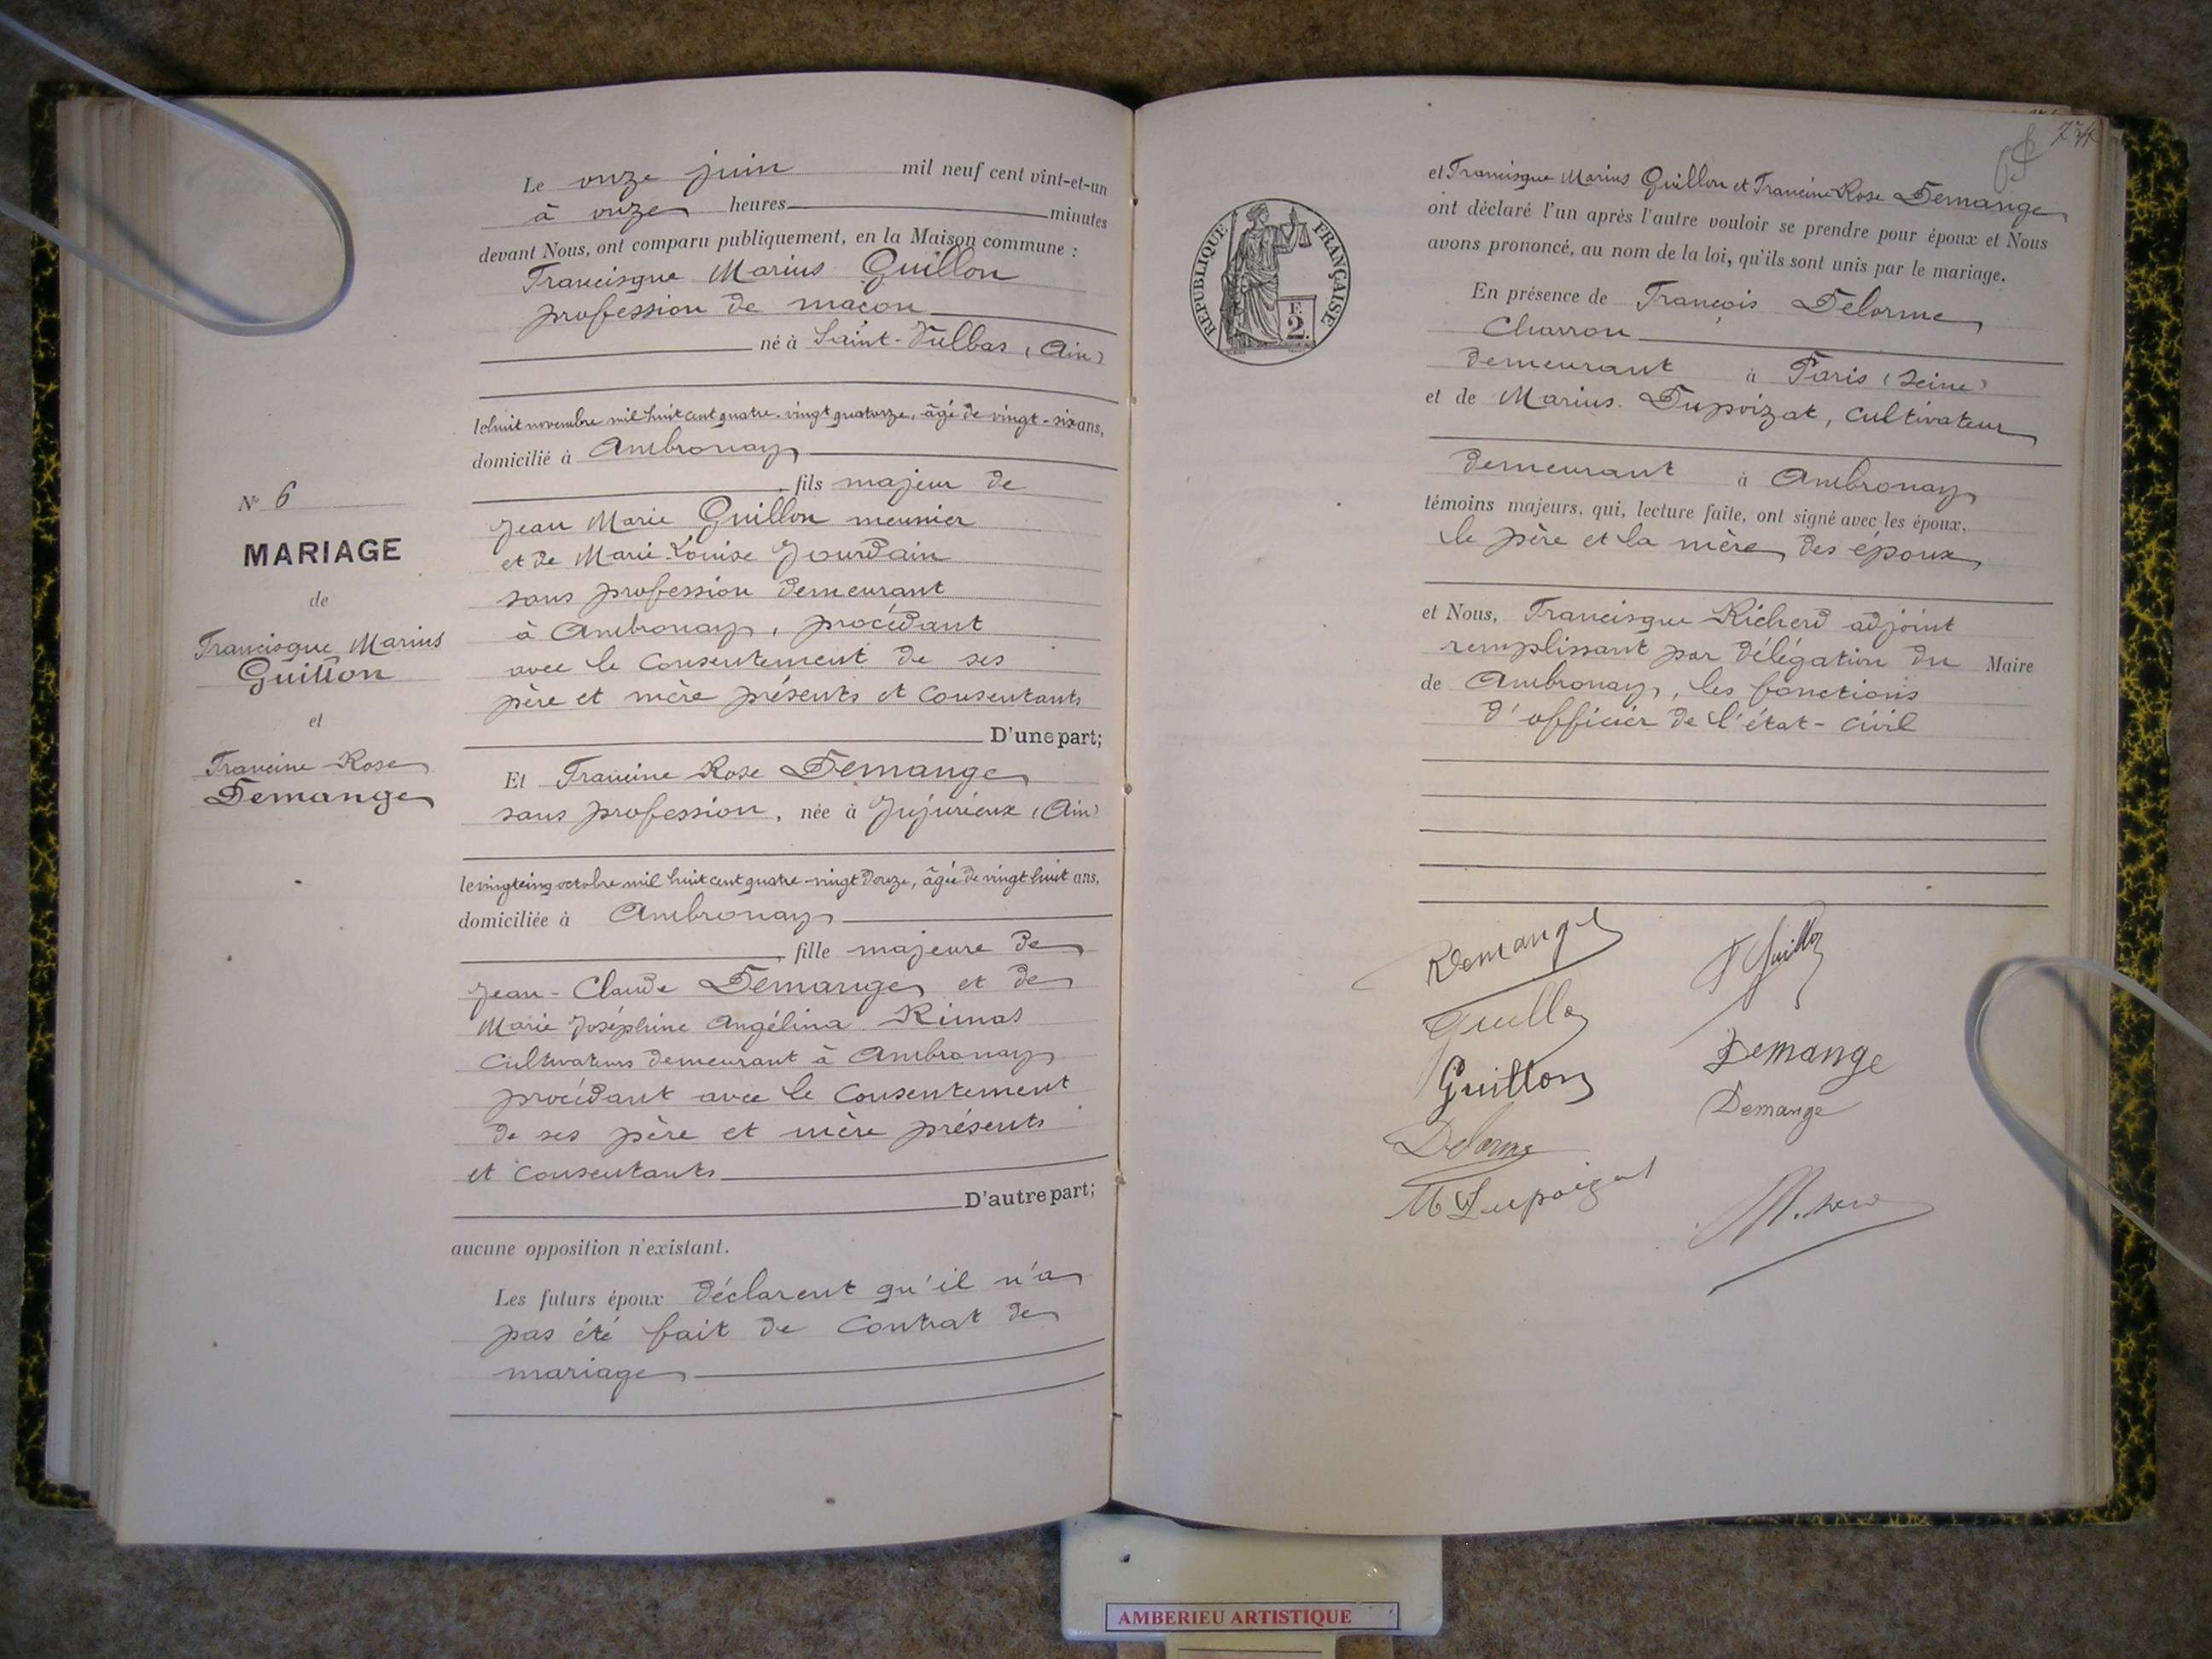 Le onze juin mil neuf cent vint-et-un
à onze heures minutes
devant Nous, ont comparu publiquement, en la Maison commune :
Francisque Marius Guillon
profession de maçon
né à Saint-Vulbas (Ain)
le huit novembre mil huit cent quatre-vingt quatorze, âgé de vingt-six ans,
domicilié à Ambronay
fils majeur de
Jean Marie Guillon meunier
et de Marie Louise Jourdain
sans profession demeurant
à Ambronay, procédant
avec le consentement de ses
père et mère présents et consentants
D'une part;
Et Francine Rose Demange
sans profession, née à Jujurieux (Ain)
le vingt cinq octobre mil huit cent quatre-vingt douze, âgée de vingt huit ans,
domiciliée à Ambronay
fille majeure de
Jean-Claude Demange et de
Marie Joséphine Angélina Rimas
cultivateurs demeurant à Ambronay
procédant avec le consentement
de ses père et mère présents
et consentants
D'autre part;
aucune opposition n'existant.
Les futurs époux déclarent qu'il n'a
pas été fait de contrat de
mariage
N° 6
MARIAGE
de
Francisque Marius
Guillon
et
Francine Rose
Demange
et Francisque Marius Guillon et Francine Rose Demange
ont déclaré l'un après l'autre vouloir se prendre pour époux et Nous
avons prononcé, au nom de la loi, qu'ils sont unis par le mariage.
En présence de François Delorme
Charron
demeurant à Paris (Seine)
et de Marius Dupoizat, cultivateur
demeurant à Ambronay
témoins majeurs, qui, lecture faite, ont signé avec les époux,
le père et la mère des époux
et Nous, Francisque Richerd adjoint
remplissant par délégation du Maire
de Ambronay, les fonctions
d'officier de l'état-civil
RÉPUBLIQUE FRANÇAISE
F.
2.
RDemange
F Guillon
Guillon
Demange
Guillon
Demange
Delorme
M Dupoizat
AMBERIEU ARTISTIQUE